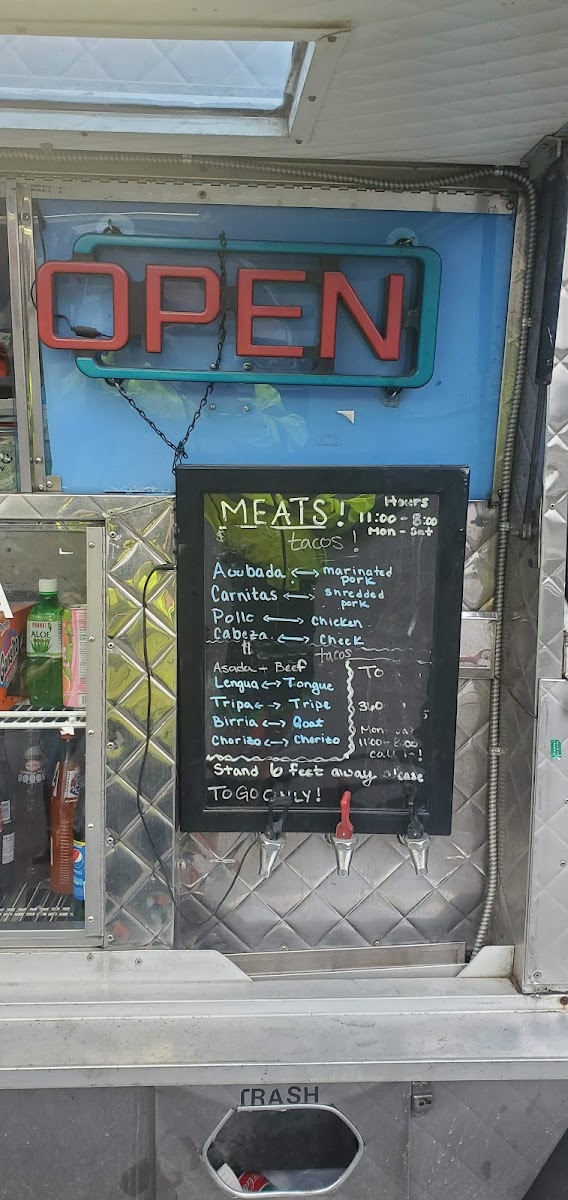 OPEN
MEATS!
Hours
11:00 - 8:00
Mon - Sat
$
tacos!
Adobada ↔ marinated pork
Carnitas ↔ shredded pork
Pollo ↔ chicken
Cabeza ↔ cheek
tacos
Asada + Beef
Lengua ↔ Tongue
Tripa ↔ Tripe
Birria ↔ Goat
Chorizo ↔ Chorizo
TO
360
Mon-Sat
11:00-8:00
call in!
Stand 6 feet away please
TO GO ONLY!
ALOE
Crush
TRASH